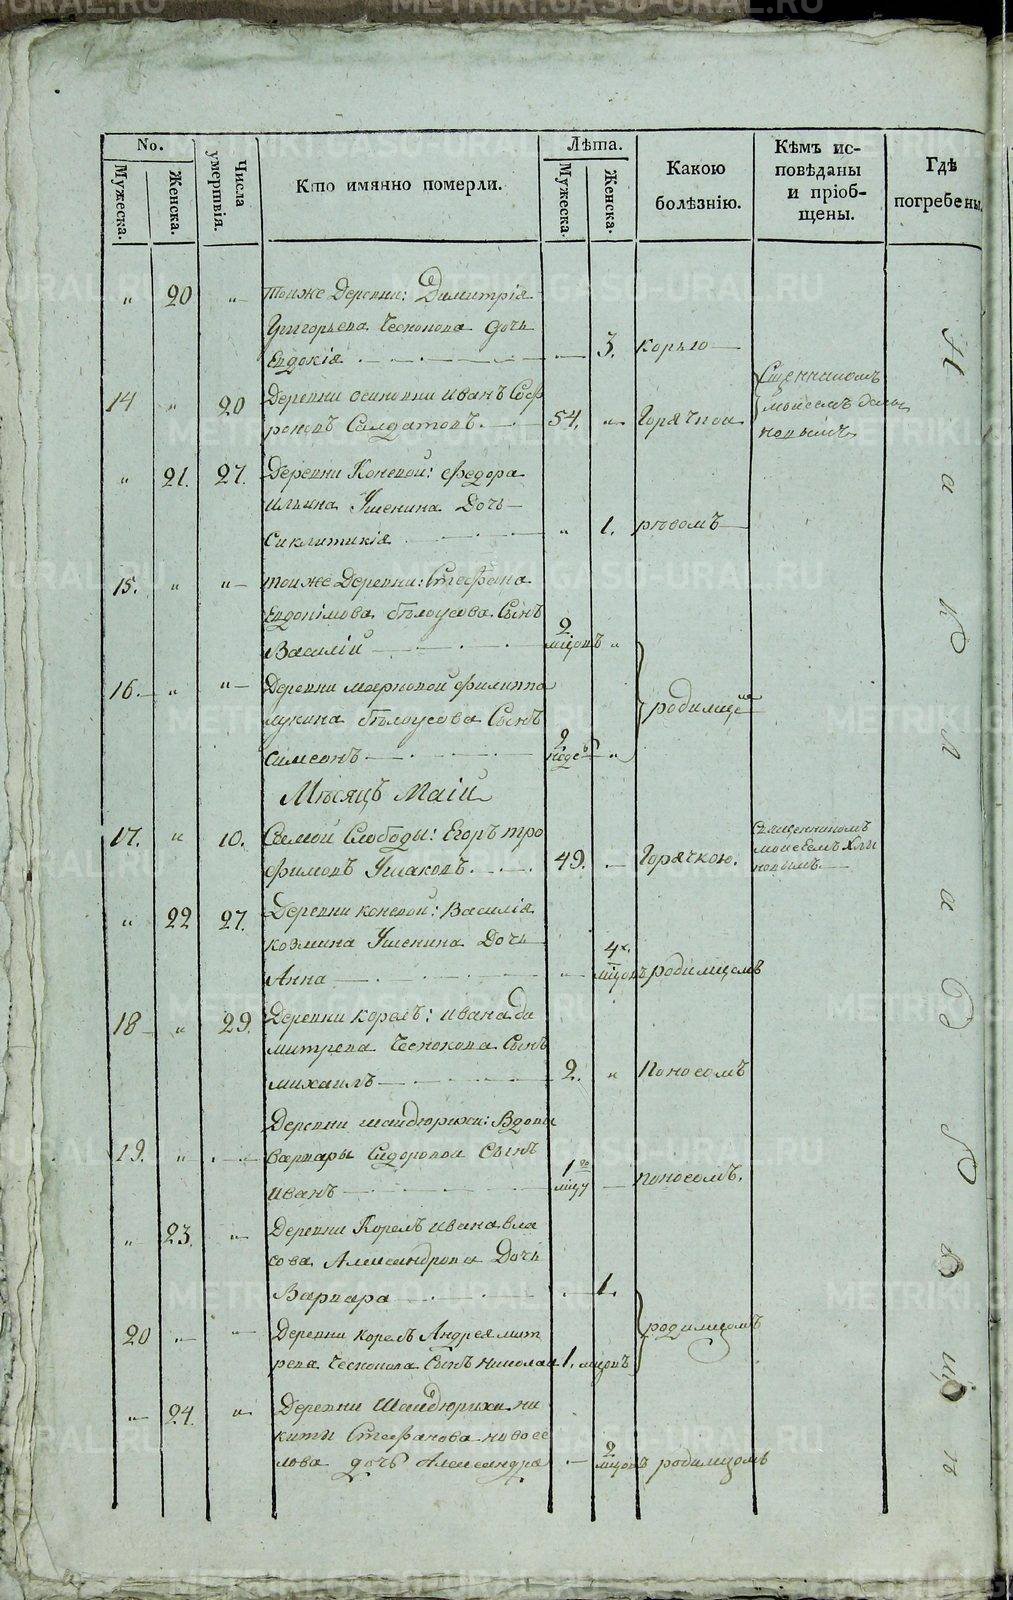 No.
Мужеска.
Женска.
Числа умертвія.
Кто имянно померли.
Лѣта.
Мужеска.
Женска.
Какою болѣзнію.
Кѣмъ ис-
повѣданы
и пріоб-
щены.
Гдѣ
погребены.
" 20 " тоиже Деревни: Димитрія
Григорьева Чеснокова дочь
Евдокія 3. корью
14 " 20 Деревни осиновки Иванъ Соф
роновъ Салдатовъ. 54. " Горячкои
Сщенникомъ
моисеемъ
" 21. 27. Деревни Коневой: Федора
ильина Ушенина Дочь
Сиклитикія " 1. рѣвомъ
15. " " тоиже Деревни: Стефана
Евдокімова бѣлоусова Сынъ
Василій 2 мцовъ "
16. " " Деревни марковой Филиппа
лукина бѣлоусова Сынъ
симеонъ 2 недѣ "
родимце
Мѣсяцъ Маій
17. " 10. Самой Слободы: Егоръ тро
фимовъ Ушаковъ. 49. Горячкою.
Священникомъ
моисеемъ
" 22 27. Деревни коневой: Василія
козмина Ушенина Дочь
Анна 4х. мцовъ родимцомъ
18 " 29. Деревни корелъ: ивана ди
митрева Чеснокова Сынъ
михаилъ 2. " Поносомъ
Деревни шайдюрихи: Вдовы
19. " варвары Сидоровой Сынъ
иванъ 1го мцу поносомъ.
" 23. " Деревни Корелъ ивана вла
сова Александрова Дочь
Варвара 1.
20 " " Деревни корелъ Андрея мит
рева Чеснокова Сынъ николаи 1. мцовъ
родимцомъ
" 24. " Деревни Шайдюрихи ни
киты Стефанова новосе
лова дочь Александра 2 мцовъ родимцомъ
На кладбищѣ
METRIKI.GASO-URAL.RU